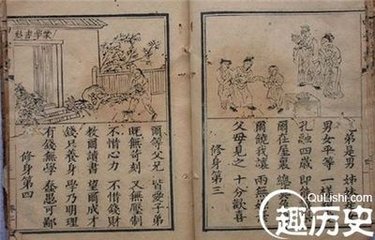 弟是男 姊妹
男女平等 一樣
孔融四歲 即能
爾在屋裏
爾饒我讓 兩無
父母見之 十分歡喜
修身第三
爾等父兄 皆愛子弟
既無苛刻 又無壓制
不惜心力 不惜錢財
教爾讀書 望爾成才
錢只養身 學乃明理
有錢無學 蠢愚可鄙
修身第四
QuLishi.com
趣历史